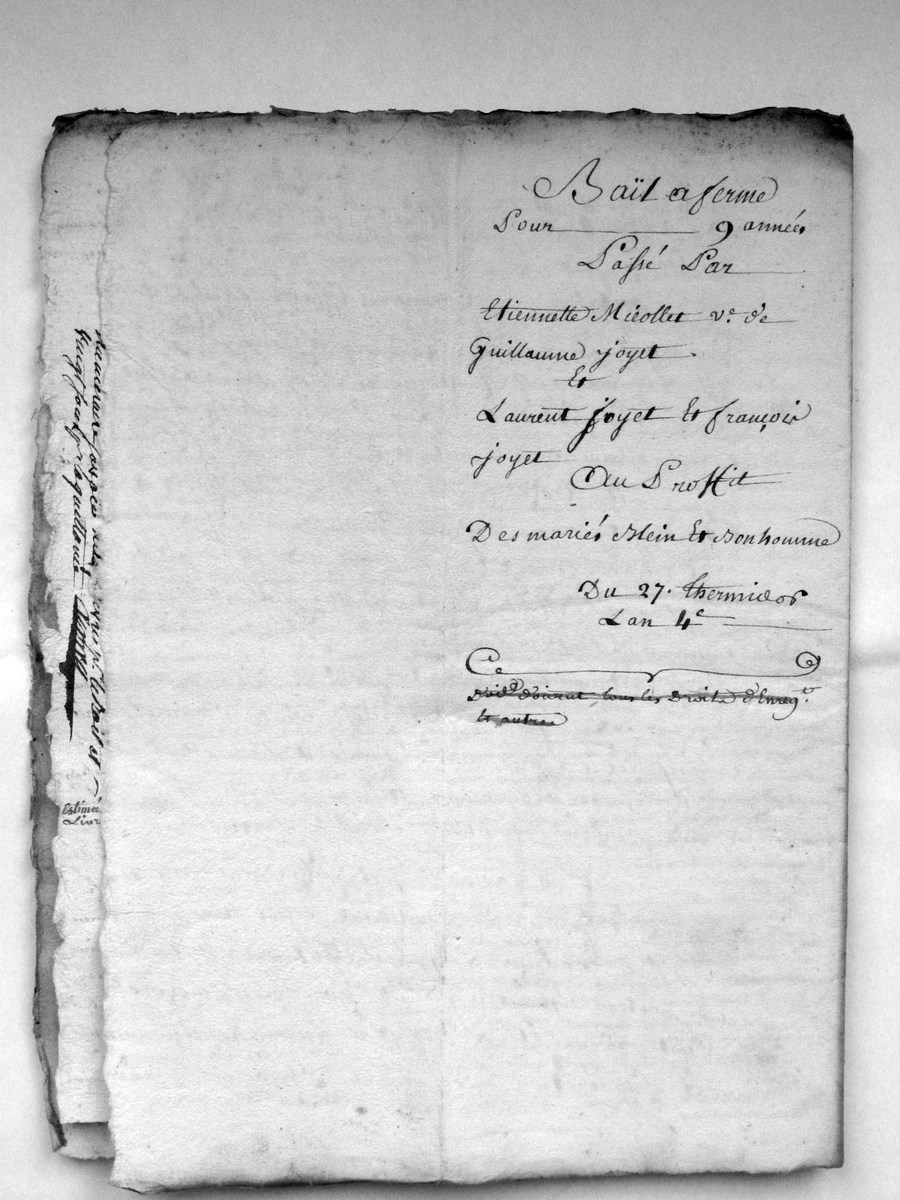 Bail a ferme
Pour 9 années
Passé Par
Etiennette Micollet ve. de
Guillaume joyet
Et
Laurent joyet Et françois
joyet
Au Proffit
Des mariés Blein Et Bonhomme
Du 27. thermidor
Lan 4e
doivent tous les Droits d'Enreg.
et autres
Estimé